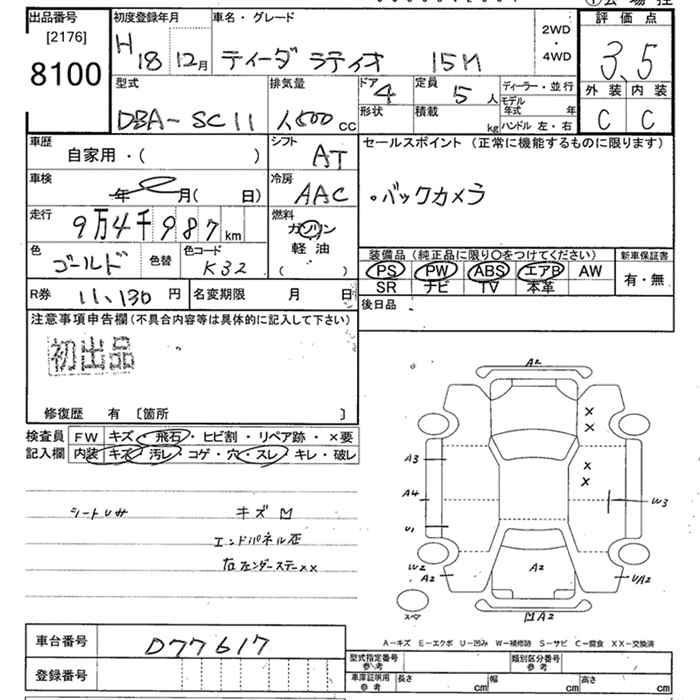 出品番号
[2176]
8100
初度登録年月
H 18 12月
車名・グレード
ティーダ ラティオ 15M
2WD
・
4WD
評価点
3.5
外装 内装
C C
型式
DBA-SC11
排気量
1500 cc
ドア
4
形状
定員
5 人
積載
kg
ディーラー・並行
モデル年式 年
ハンドル 左・右
車歴
自家用・( )
シフト
AT
セールスポイント (正常に機能するものに限ります)
・バックカメラ
車検
年 月( 日)
冷房
AAC
走行
9万4千987 km
燃料
ガソリン
軽油
( )
色
ゴールド
色替
色コード
K32
装備品(純正品に限り○をつけてください)
新車保証書
PS PW ABS エアB AW
SR ナビ TV 本革
有・無
R券 11,130 円
名変期限 月 日
後日品
注意事項申告欄(不具合内容等は具体的に記入して下さい)
初出品
修復歴 有 [箇所 ]
検査員
記入欄
FW キズ・飛石・ヒビ割・リペア跡・×要
内装 キズ・汚レ・コゲ・穴・スレ・キレ・破レ
シートUサ
キズ M
エンドパネル
A2
A3
A4
U1
W2
A2
A2
W3
U/A2
MA2
スペア
A-キズ E-エクボ U-凹み W-補修跡 S-サビ C-腐食 XX-交換済
車台番号
D77617
登録番号
型式指定番号
参考
類別区分番号
参考
車庫証明用
参考
長さ cm
幅 cm
高さ cm